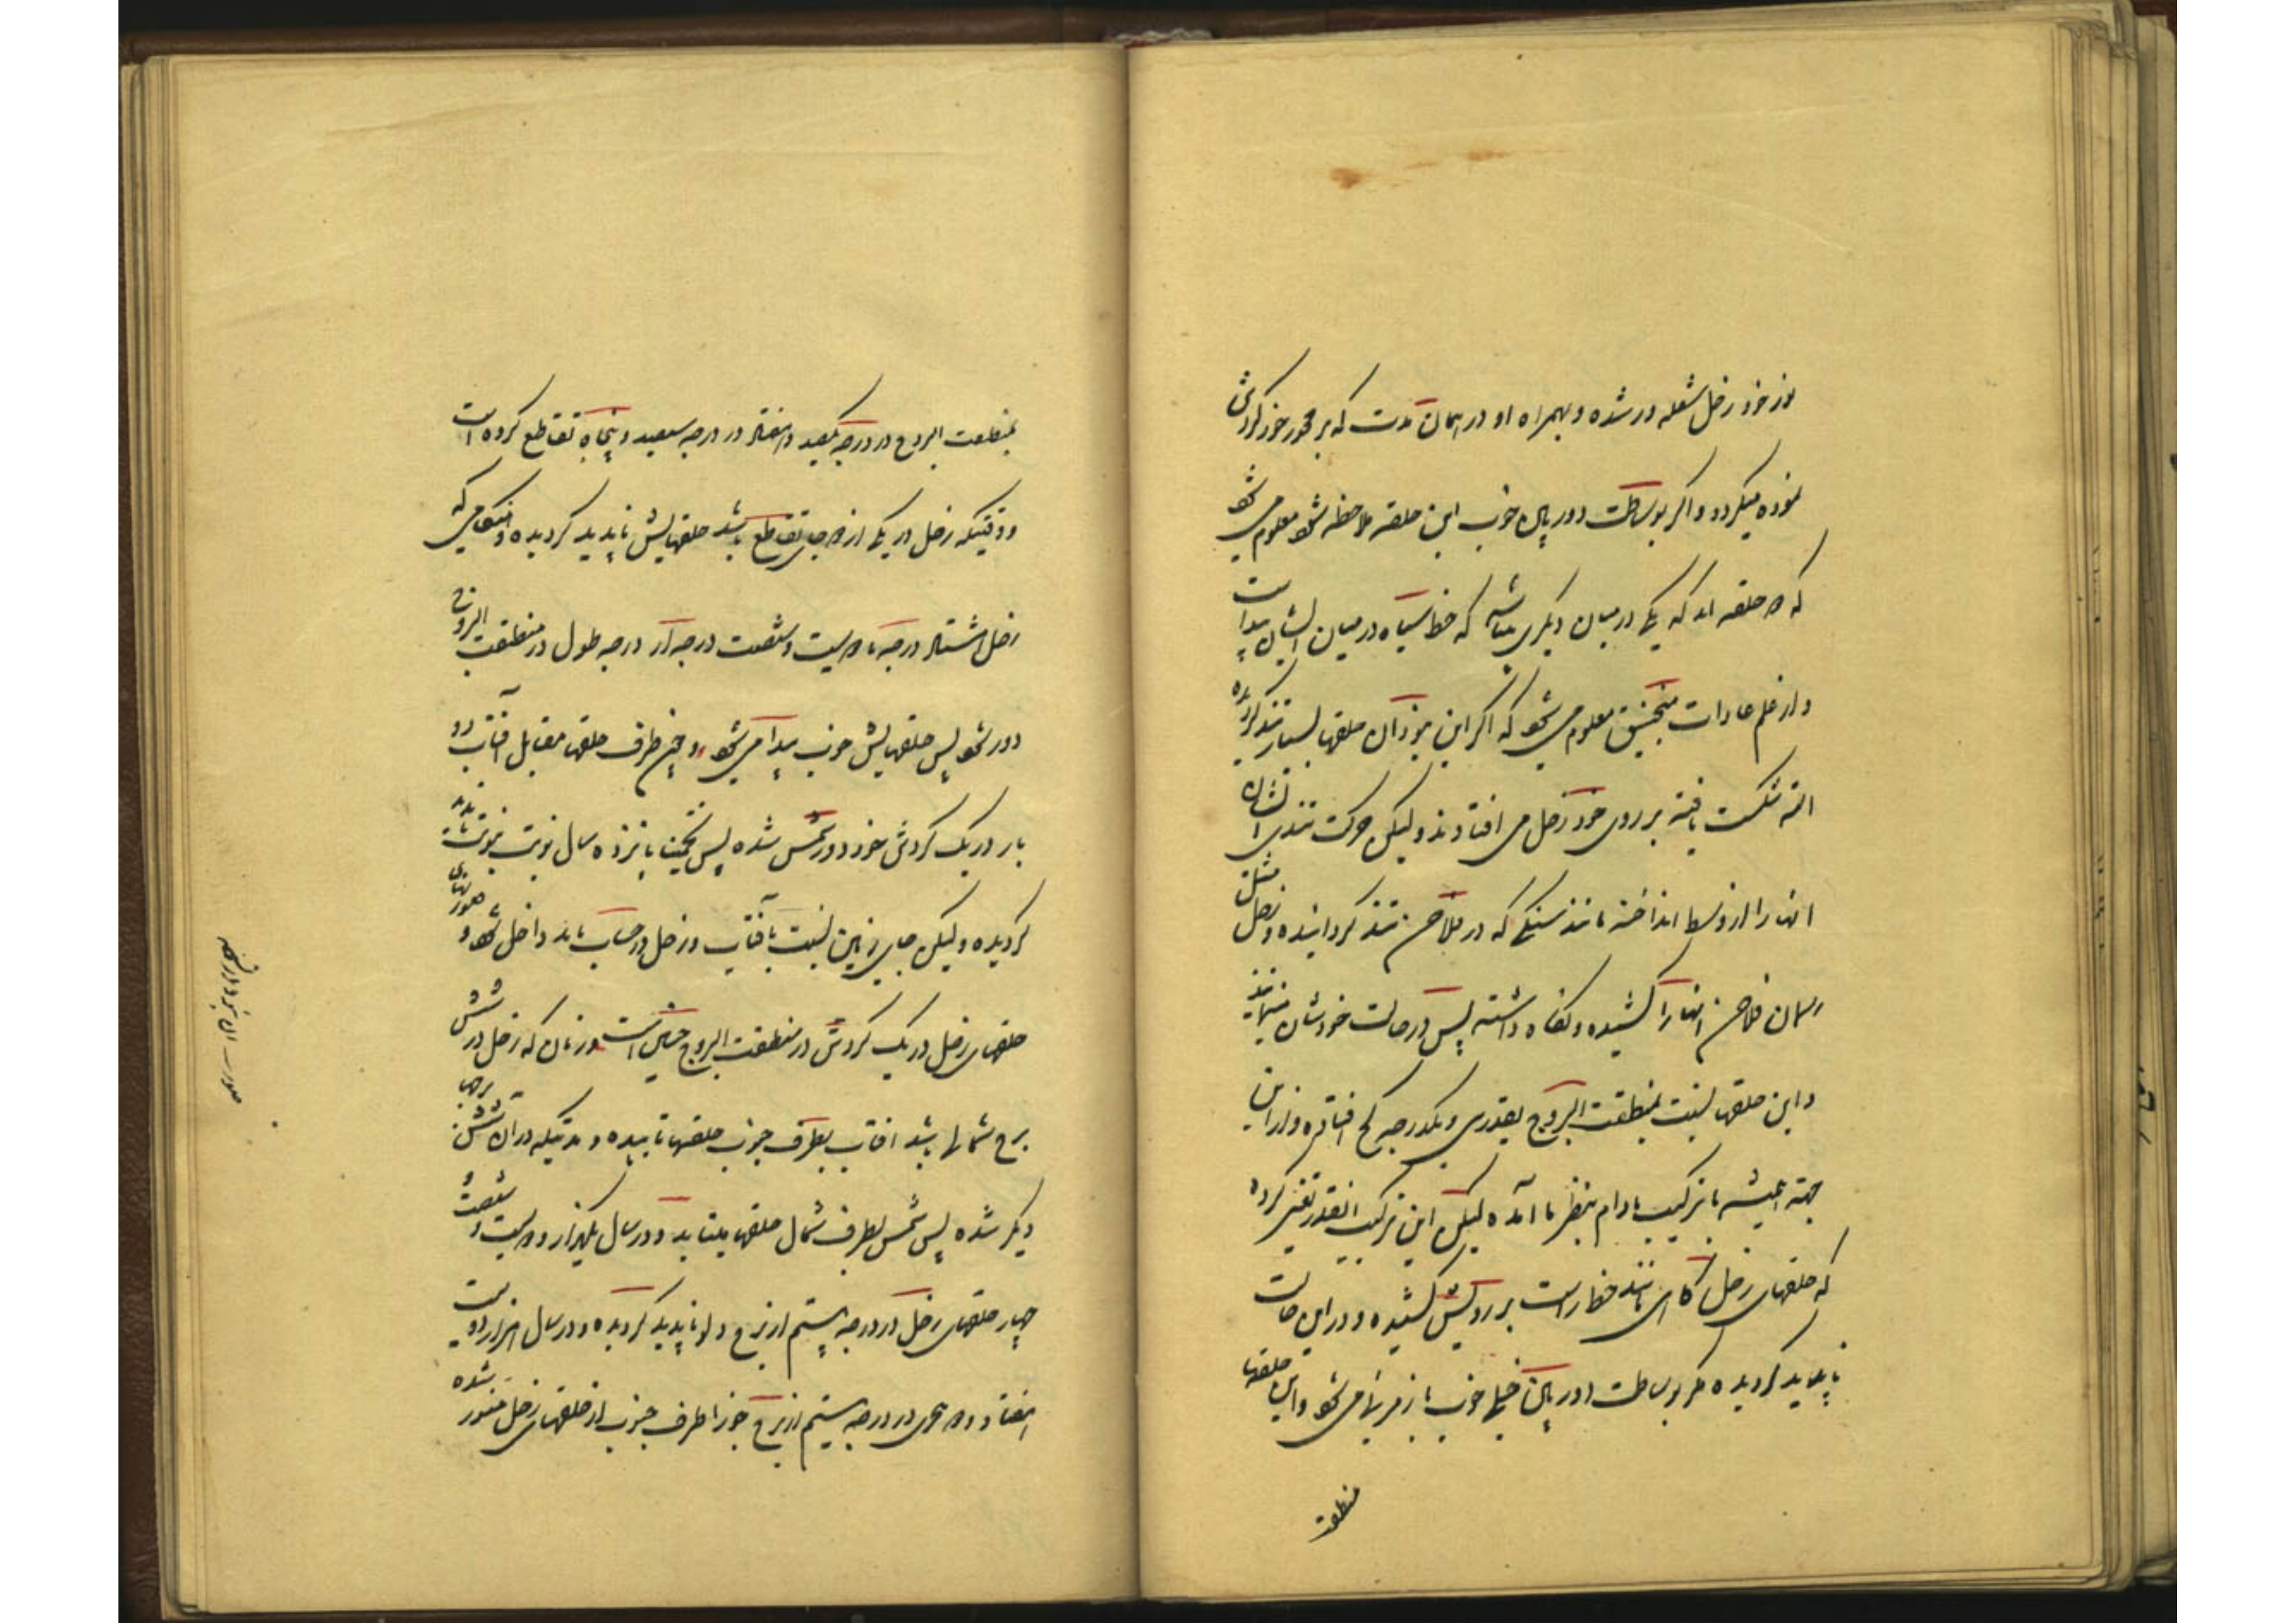 نور خود زحل شعله ور شده و بهمراه او در همان مدت که بر محور خود گردش
نموده میگردد و اگر بوساطت دوربین خوب این حلقه ملاحظه شود معلوم می شود
که دو حلقه اند که یکی در میان دیگری میباشد که خط سیاه در میان ایشان پیدا است
و از علم عادات منجنیق معلوم می شود که اگر این نبود آن حلقها بسیار تند گردیده
البته شکست یافته بر روی خود زحل می افتادند ولیکن حرکت تندی ایشان
آنها را از وسط انداخته مانند سنگی که در فلاخن تند گردانیده و زحل مثل
رسمان فلاخن آنها را کشیده و نگاه داشته پس در حالت خودشان میمانند
و این حلقها نسبت بمنطقت البروج بقدری و یکدرجه کج افتاده و از این
جهت همیشه با ترکیب بادام بنظر ما آمده لیکن این ترکیب آنقدر تغییر کرده
که حلقهای زحل گاهی مانند خط راست بر رویش کشیده و در این حالت
ناپدید گردیده مگر بوساطت دوربین خیلی خوب باز مرئی می شود و این حلقها
منطقت
بمنطقت البروج در درجه یکصد و هفتاد و در درجه سیصد و پنجاه تقاطع کرده است
و وقتیکه زحل در یکی از دو جای تقاطع باشد حلقهایش ناپدید گردیده و هنگامی که
زحل هشتاد درجه یا دویست و شصت درجه از درجه طول در منطقت البروج
دور شود پس حلقهایش خوب پیدا می شود و چون طرف حلقها مقابل آفتاب دو
بار در یک گردش خود دور شمس شده پس تخمیناً پانزده سال نوبت بنوبت ناپدید
گردیده ولیکن جای زمین نسبت بآفتاب و زحل در حساب باید داخل شود و صورتهای
حلقهای زحل در یک گردش در منطقت البروج چنین است در زمان که زحل در شش
برج شمالها باشد آفتاب بطرف جنوب حلقها تابیده و مدتیکه در آن شش برجهای
دیگر شده پس شمس بطرف شمال حلقها میتابد و در سال یکهزار و دویست و شصت و
چهار حلقهای زحل در درجه بیستم از برج دلو ناپدید گردیده و در سال هزار دویست
هفتاد و دو هجری در درجه بیستم از برج جوزا طرف جنوب از حلقهای زحل منور شده
صورت آن نبود در نسخه